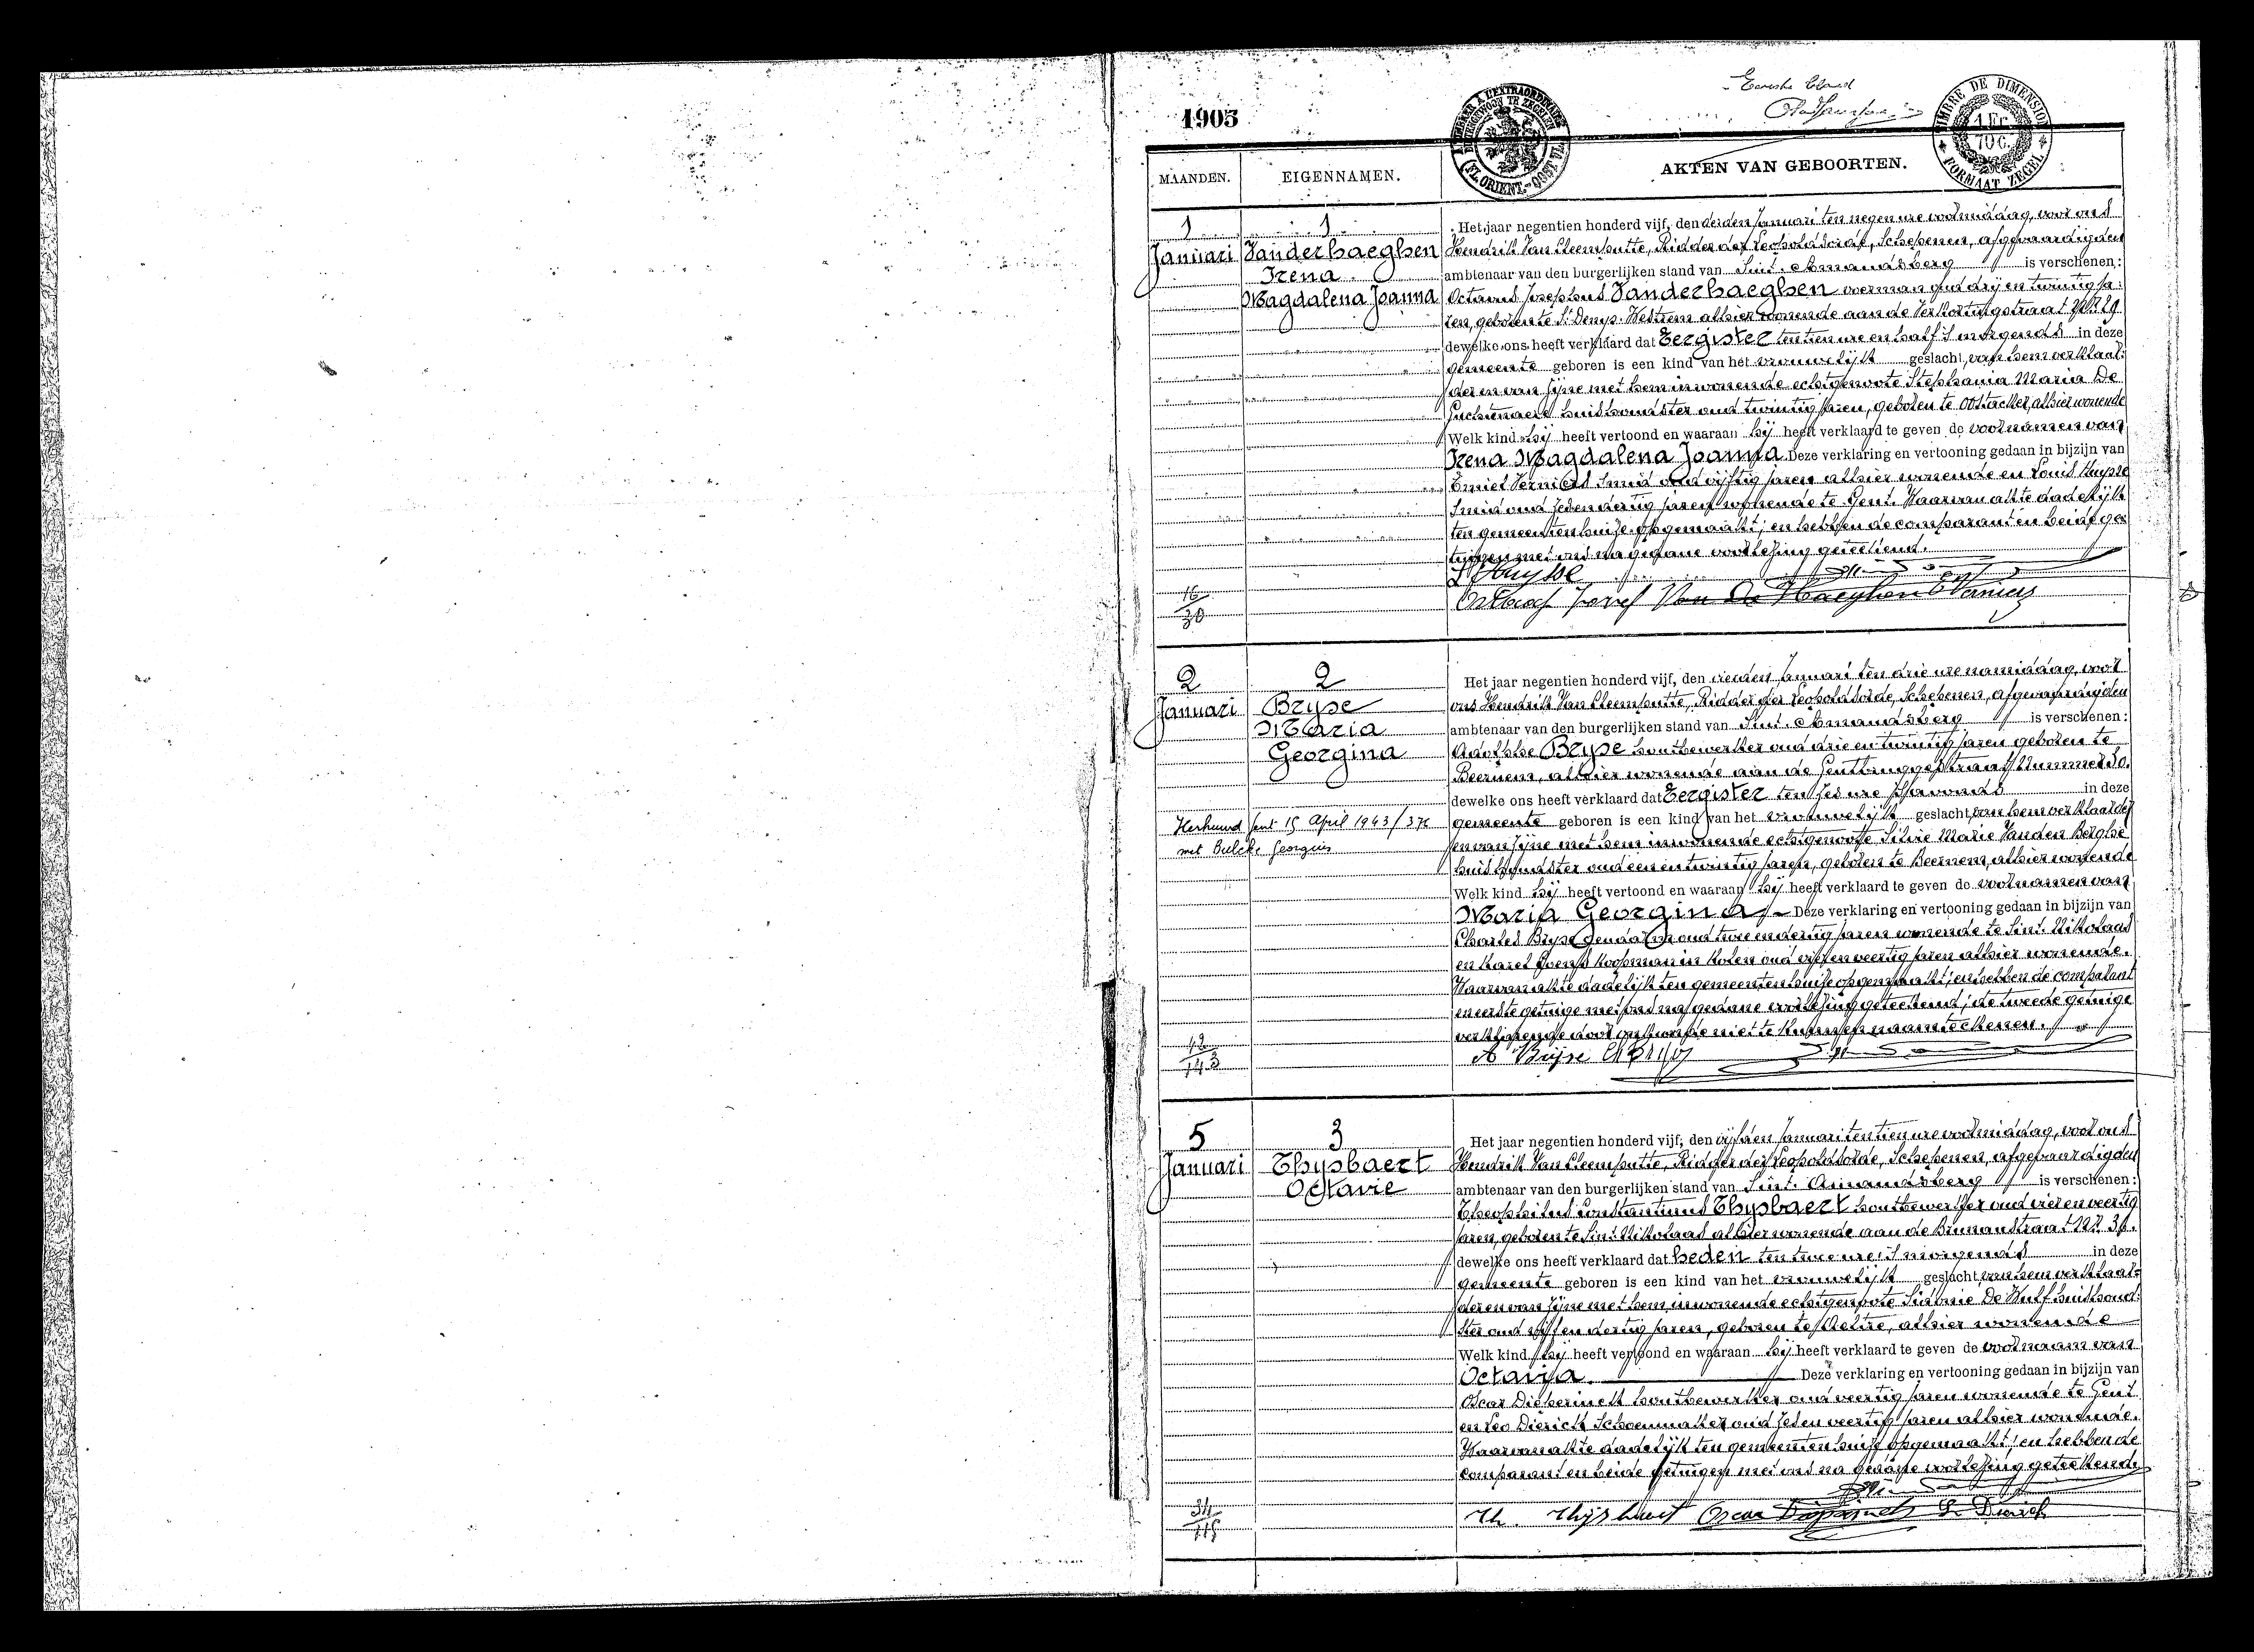 Eerste blad
1905
TIMBRE DE DIMENSION
1 Fr.
70 c.
FORMAAT ZEGEL
(FL. ORIENT.-OOST VL.)
MAANDEN.
EIGENNAMEN.
AKTEN VAN GEBOORTEN.
1
1
Januari
Vanderhaeghen
Irena
Magdalena Joanna
Het jaar negentien honderd vijf, den derden Januari ten negen ure voormiddag, voor ons
Hendrik Van Cleemputte, Ridder der Leopoldsorde, Schepenen, afgevaardigden
ambtenaar van den burgerlijken stand van Sint-Amandsberg is verschenen:
Octavus Josephus Vanderhaeghen oud drij en twintig ja-
ren, geboren te St Denys-Westrem alhier wonende aan de Verkortingstraat No 29
dewelke ons heeft verklaard dat Eergister ten tien ure en half 's morgends in deze
gemeente geboren is een kind van het vrouwelijk geslacht, van hem verklaar-
der en van zijne met hem inwonende echtgenoote Stephania Maria De
huishoudster oud twintig jaren, geboren te Oostacker, alhier wonende
Welk kind hij heeft vertoond en waaraan hij heeft verklaard te geven de voornamen van
Irena Magdalena Joanna Deze verklaring en vertooning gedaan in bijzijn van
Emiel Verniers Smid oud vijftig jaren alhier wonende en Louis Huysse
Smid oud zeven dertig jaren wonende te Gent. Waarvan akte dadelijk
ten gemeentenhuize opgemaakt; en hebben de comparant en beide ge-
tuigen met ons na gedane voorlezing geteekend.
L Huysse
Octaaf Jozef Van De Haeghen E Verniers
16
30
2
2
Januari
Bryse
Maria
Georgina
Het jaar negentien honderd vijf, den vierden Januari ten drie ure namiddag, voor
ons Hendrik Van Cleemputte, Ridder der Leopoldsorde, Schepenen, afgevaardigden
ambtenaar van den burgerlijken stand van Sint-Amandsberg is verschenen:
Adolphe Bryse houtbewerker oud drie en twintig jaren geboren te
Beernem, alhier wonende aan de Gentbruggestraat Nummer 50.
dewelke ons heeft verklaard dat Eergister ten zes ure 's avonds in deze
gemeente geboren is een kind van het vrouwelijk geslacht, van hem verklaarder
en van zijne met hem inwonende echtgenoote Silvie Marie Vanden Berghe
huishoudster oud een en twintig jaren, geboren te Beernem, alhier wonende
Welk kind hij heeft vertoond en waaraan hij heeft verklaard te geven de voornamen van
Maria Georgina Deze verklaring en vertooning gedaan in bijzijn van
Charles Bryse gendarm oud twee en dertig jaren wonende te Sint-Nikolaas
en Karel Koopman in kolen oud vijf en veertig jaren alhier wonende.
Waarvan akte dadelijk ten gemeentenhuize opgemaakt; en hebben de comparant
en eerste getuige met ons na gedane voorlezing geteekend; de tweede getuige
verklarende door onkunde niet te kunnen naamteekenen.
Herhuwd Gent 15 April 1943 / 376
met Bulcke Georges
A Bryse
12
143
5
3
Januari
Thysbaert
Octavie
Het jaar negentien honderd vijf, den vijfden Januari ten tien ure voormiddag, voor ons
Hendrik Van Cleemputte, Ridder der Leopoldsorde, Schepenen, afgevaardigden
ambtenaar van den burgerlijken stand van Sint-Amandsberg is verschenen:
Theophilus Constantinus Thysbaert houtbewerker oud vier en veertig
jaren, geboren te Sint-Nikolaas alhier wonende aan de
dewelke ons heeft verklaard dat heden ten twee ure 's morgends in deze
gemeente geboren is een kind van het vrouwelijk geslacht, van hem verklaar-
der en van zijne met hem inwonende echtgenoote Sidonie De Wulf huishoud-
ster oud vijf en dertig jaren, geboren te Aeltre, alhier wonende
Welk kind hij heeft vertoond en waaraan hij heeft verklaard te geven de voornaam van
Octavja Deze verklaring en vertooning gedaan in bijzijn van
Oscar Dieperinck houtbewerker oud veertig jaren wonende te Gent
en Leo Dierick Schoenmaker oud zeven veertig jaren alhier wonende.
Waarvan akte dadelijk ten gemeentenhuize opgemaakt; en hebben de
comparant en beide getuigen met ons na gedane voorlezing geteekend.
Th. Thysbaert Oscar Dieperinck L. Dierick
34
115